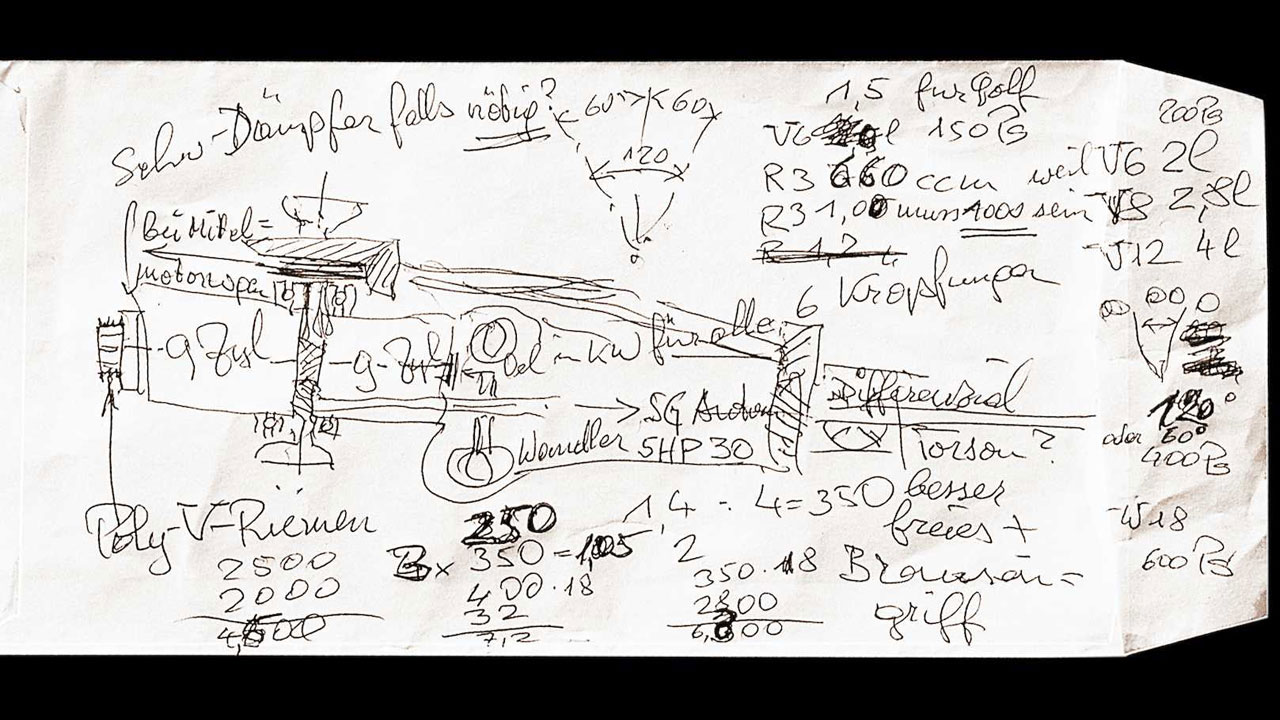 Schw-Dämpfer falls nötig?
60° 60
120
1,5 für Golf
V6 150 PS
R3 660 ccm weil V6 2l
R3 1,00 muss 1000 sein V8 2,8l
R 1,2 V12 4l
200 PS
Kröpfungen
6
bei Mittel=
motorwagen
9 Zyl
9-Zyl
Öel in KW für alle
5G
Wandler 5HP30
Differenzial
Torson?
120°
oder 60°
400 PS
Poly-V-Riemen
2500
2000
250
350 =
400 · 18
32
7,2
1,4 - 4 = 350
2
350 · 18
2800
besser
freies +
Bremsen=
griff
W18
600 PS